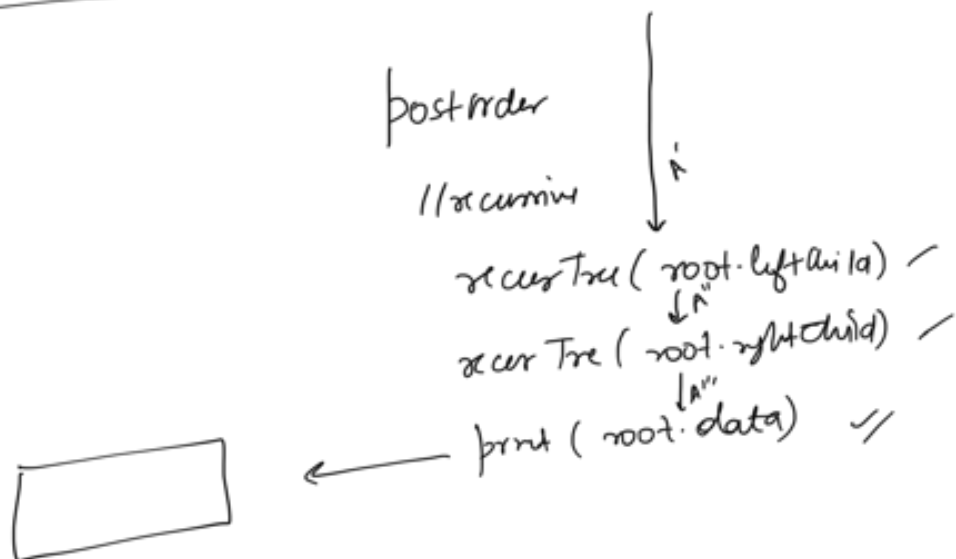 postorder
A'
//recursive
recurTree( root.leftChild)
A"
recur Tre( root.rightChild)
A"'
print( root.data)